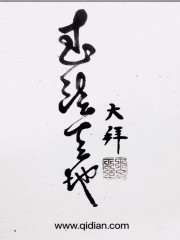 武法天地
大拜
www.qidian.com